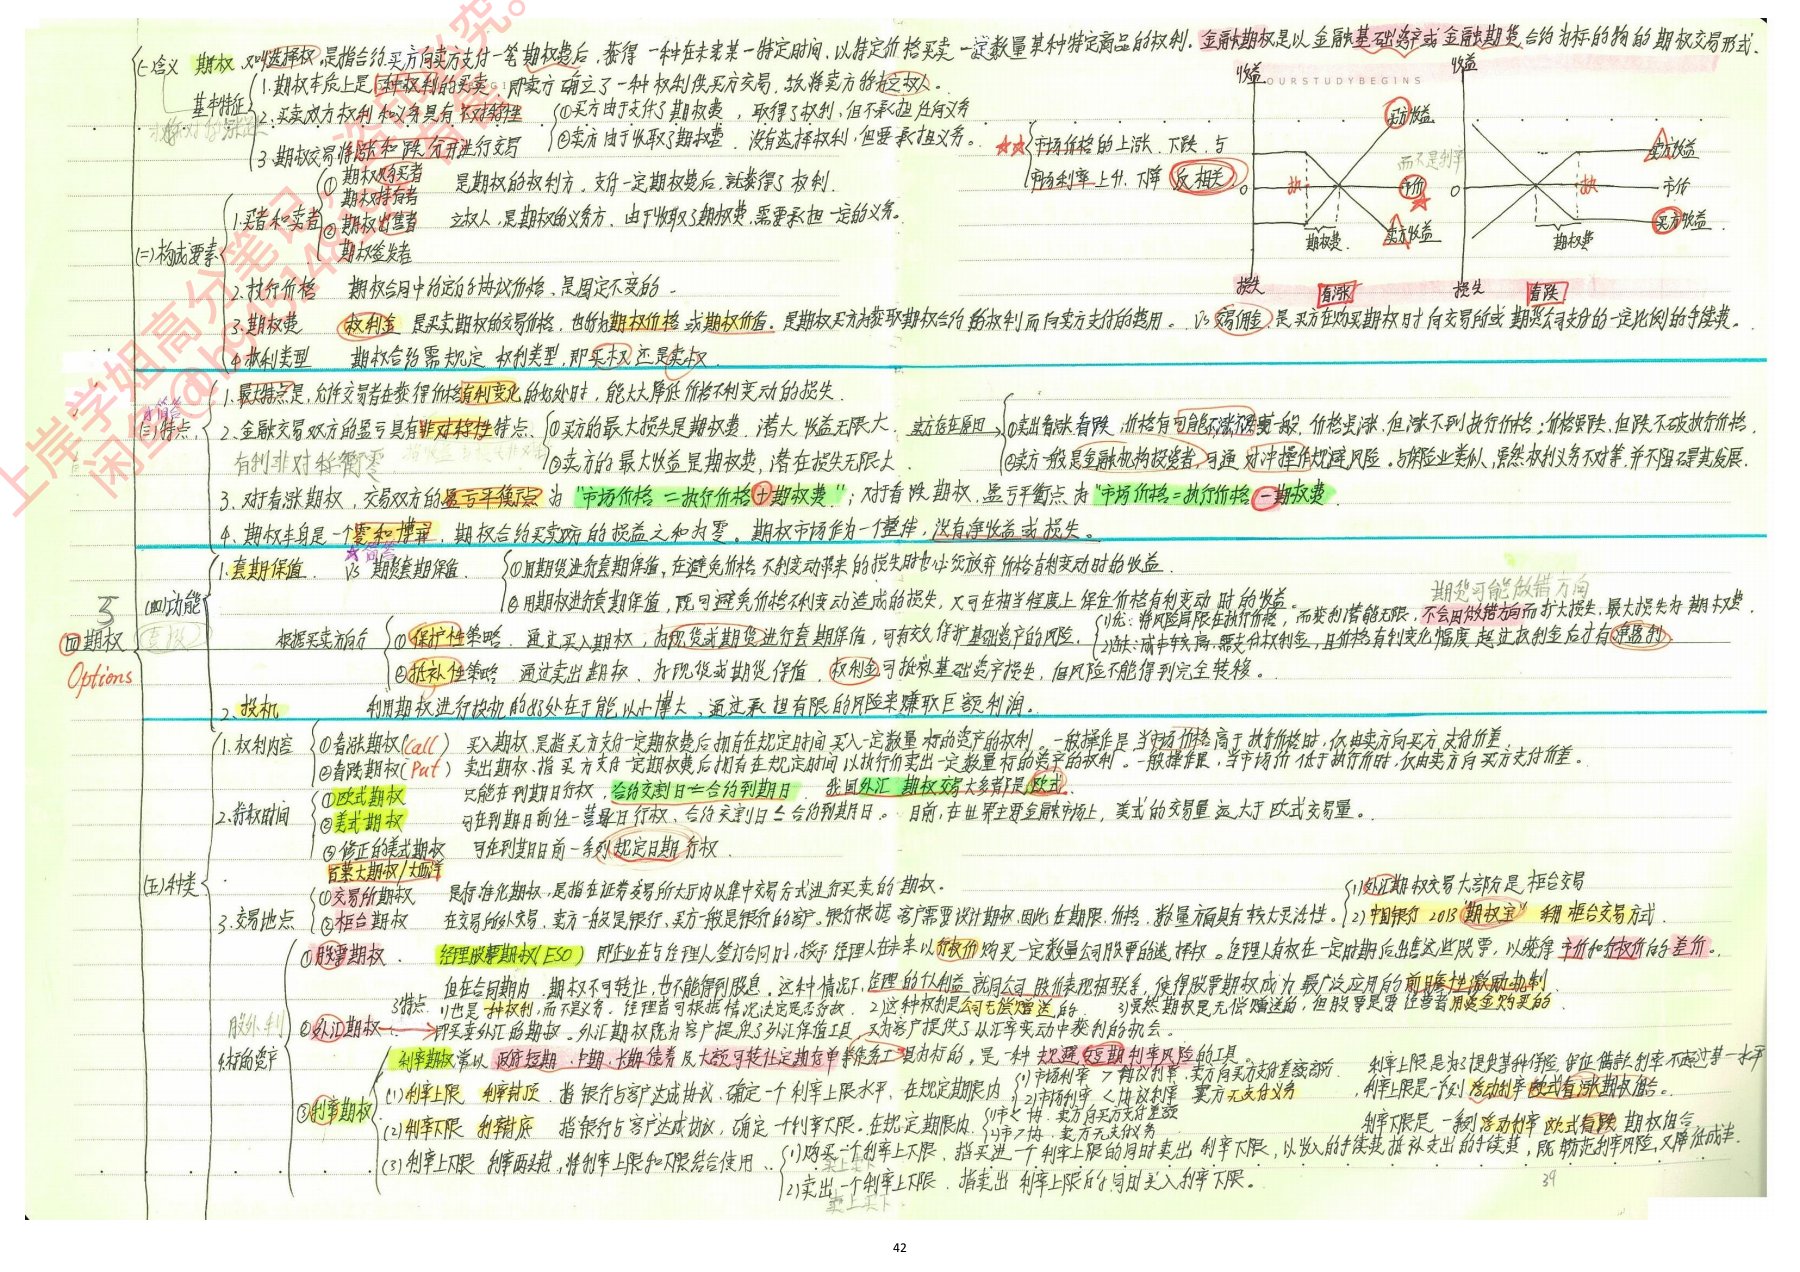 (一)含义 期权,又叫选择权,是指合约买方向卖方支付一笔期权费后,获得一种在未来某一特定时间,以特定价格买卖一定数量某种特定商品的权利。金融期权是以金融基础资产或金融期货合约为标的物的期权交易形式。
OURSTUDYBEGINS
基本特征
1.期权本质上是一种权利的买卖,即卖方确立了一种权利供买方交易,故将卖方称为立权人。
2.买卖双方权利和义务具有不对称性
①买方由于支付了期权费,取得了权利,但不承担任何义务
②卖方由于收取了期权费,没有选择权利,但要承担义务。
3.期权交易将涨和跌分开进行交易
★★市场价格的上涨、下跌,与
市场利率上升、下降 反相关
收益
买方收益
而不是利率
执
0
市价
卖方收益
期权费
损失
看涨
收益
卖方收益
执
0
市价
买方收益
期权费
损失
看跌
(二)构成要素
1.买者和卖者
① 期权购买者
期权持有者
是期权的权利方,支付一定期权费后,就获得了权利.
② 期权出售者
期权签发者
立权人,是期权的义务方,由于收取了期权费,需要承担一定的义务。
2.执行价格 期权合同中约定的协议价格,是固定不变的。
3.期权费 权利金 是买卖期权的交易价格,也称为期权价格或期权价值。是期权买方为获取期权合约的权利而向卖方支付的费用。 VS 交易佣金 是买方在购买期权时向交易所或期货公司支付的一定比例的手续费。
4.权利类型 期权合约需规定权利类型,即买权还是卖权
简答
(三)特点
1.最大特点是,允许交易者在获得价格有利变化的好处时,能大大降低价格不利变动的损失.
2.金融交易双方的盈亏具有非对称性特点
有利非对称衡零
①买方的最大损失是期权费,潜大收益无限大
②卖方的最大收益是期权费,潜在损失无限大
卖方存在原因
①卖出看涨看跌,价格有可能不涨不跌或一般,价格虽涨,但涨不到执行价格;价格虽跌,但跌不破执行价格.
②卖方一般是金融机构投资者,可通过对冲操作规避风险。与保险业类似,虽然权利义务不对等,并不阻碍其发展.
3.对于看涨期权,交易双方的盈亏平衡点为"市场价格=执行价格+期权费";对于看跌期权,盈亏平衡点为"市场价格=执行价格-期权费
4.期权本身是一个零和博弈,期权合约买卖双方的损益之和为零。期权市场作为一个整体,没有净收益或损失。
四期权
Options
(四)功能
套投
☆简答
1.套期保值 VS 期货套期保值
①用期货进行套期保值,在避免价格不利变动带来的损失时也必须放弃价格有利变动时的收益
②用期权进行套期保值,既可避免价格不利变动造成的损失,又可在相当程度上保住价格有利变动时的收益。
期货可能做错方向
根据买卖方向分
①保护性策略 通过买入期权,为现货或期货进行套期保值,可有效保护基础资产的风险.
1)优:将风险局限在执行价格,而获利潜能无限,不会因做错方向而扩大损失,最大损失为期权费.
2)缺:成本较高,需支付权利金,且价格有利变化幅度超过权利金后才有净盈利
②抵补性策略 通过卖出期权,为现货或期货保值 权利金可抵补基础资产损失,但风险不能得到完全转移。
2.投机 利用期权进行投机的好处在于能以小博大,通过承担有限的风险来赚取巨额利润。
(五)种类
1.权利内容
①看涨期权(Call) 买入期权,是指买方支付一定期权费后拥有在规定时间买入一定数量标的资产的权利。一般操作是,当市场价格高于执行价格时,仅由卖方向买方支付价差
②看跌期权(Put) 卖出期权,指买方支付一定期权费后拥有在规定时间以执行价卖出一定数量标的资产的权利。一般操作是,当市场价低于执行价时,仅由卖方向买方支付价差。
2.行权时间
①欧式期权 只能在到期日行权,合约交割日=合约到期日 我国外汇期权交易大多都是欧式.
②美式期权 可在到期日前任一营业日行权,合约交割日≤合约到期日。目前,在世界主要金融市场上,美式的交易量远大于欧式交易量。
③修正的美式期权 可在到期日前一系列规定日期行权.
百慕大期权/大西洋
3.交易地点
①交易所期权 是标准化期权,是指在证券交易所大厅内以集中交易方式进行买卖的期权.
②柜台期权 在交易所外交易,卖方一般是银行,买方一般是银行的客户。银行根据客户需要设计期权,因此在期限、价格、数量方面具有较大灵活性。
1)外汇期权交易大部分是柜台交易
2)中国银行 2013 "期权宝" 利用柜台交易方式.
股外利
4.标的资产
①股票期权 经理股票期权(ESO) 即企业在与经理人签订合同时,授予经理人在未来以行权价购买一定数量公司股票的选择权。经理人有权在一定时期后出售这些股票,以获得市价和行权价的差价。
但在合同期内,期权不可转让,也不能得到股息。这种情况下,经理的个人利益就同公司股价表现相联系,使得股票期权成为最广泛应用的前瞻性激励机制.
3特点 1)也是一种权利,而不是义务,经理者可根据情况决定是否行权. 2)这种权利是公司无偿赠送的. 3)虽然期权是无偿赠送的,但股票是要经营者用现金购买的
②外汇期权 即买卖外汇的期权。外汇期权既为客户提供了外汇保值工具,又为客户提供了从汇率变动中获利的机会。
③利率期权
利率期权常以政府短期、中期、长期债券及大额可转让定期存单等债务工具为标的,是一种规避短期利率风险的工具。
(1)利率上限 利率封顶 指银行与客户达成协议,确定一个利率上限水平,在规定期限内
1)市场利率>协议利率 卖方向买方支付差额部分
2)市场利率<协议利率 卖方无支付义务
利率上限是为了提供某种保险,保证借款利率不超过某一水平
利率上限是一系列浮动利率欧式看涨期权组合。
(2)利率下限 利率封底 指银行与客户达成协议,确定一个利率下限。在规定期限内
1)市<协 卖方向买方支付差额
2)市>协 卖方无支付义务
利率下限是一系列浮动利率欧式看跌期权组合
(3)利率上下限 利率两头封,将利率上限和下限结合使用
1)购买一个利率上下限,指买进一个利率上限的同时卖出利率下限,以收入的手续费抵补支出的手续费,既防范利率风险,又降低成本.
买上卖下
2)卖出一个利率上下限,指卖出利率上限的同时买入利率下限。
卖上买下
39
42
上岸学姐高分笔记